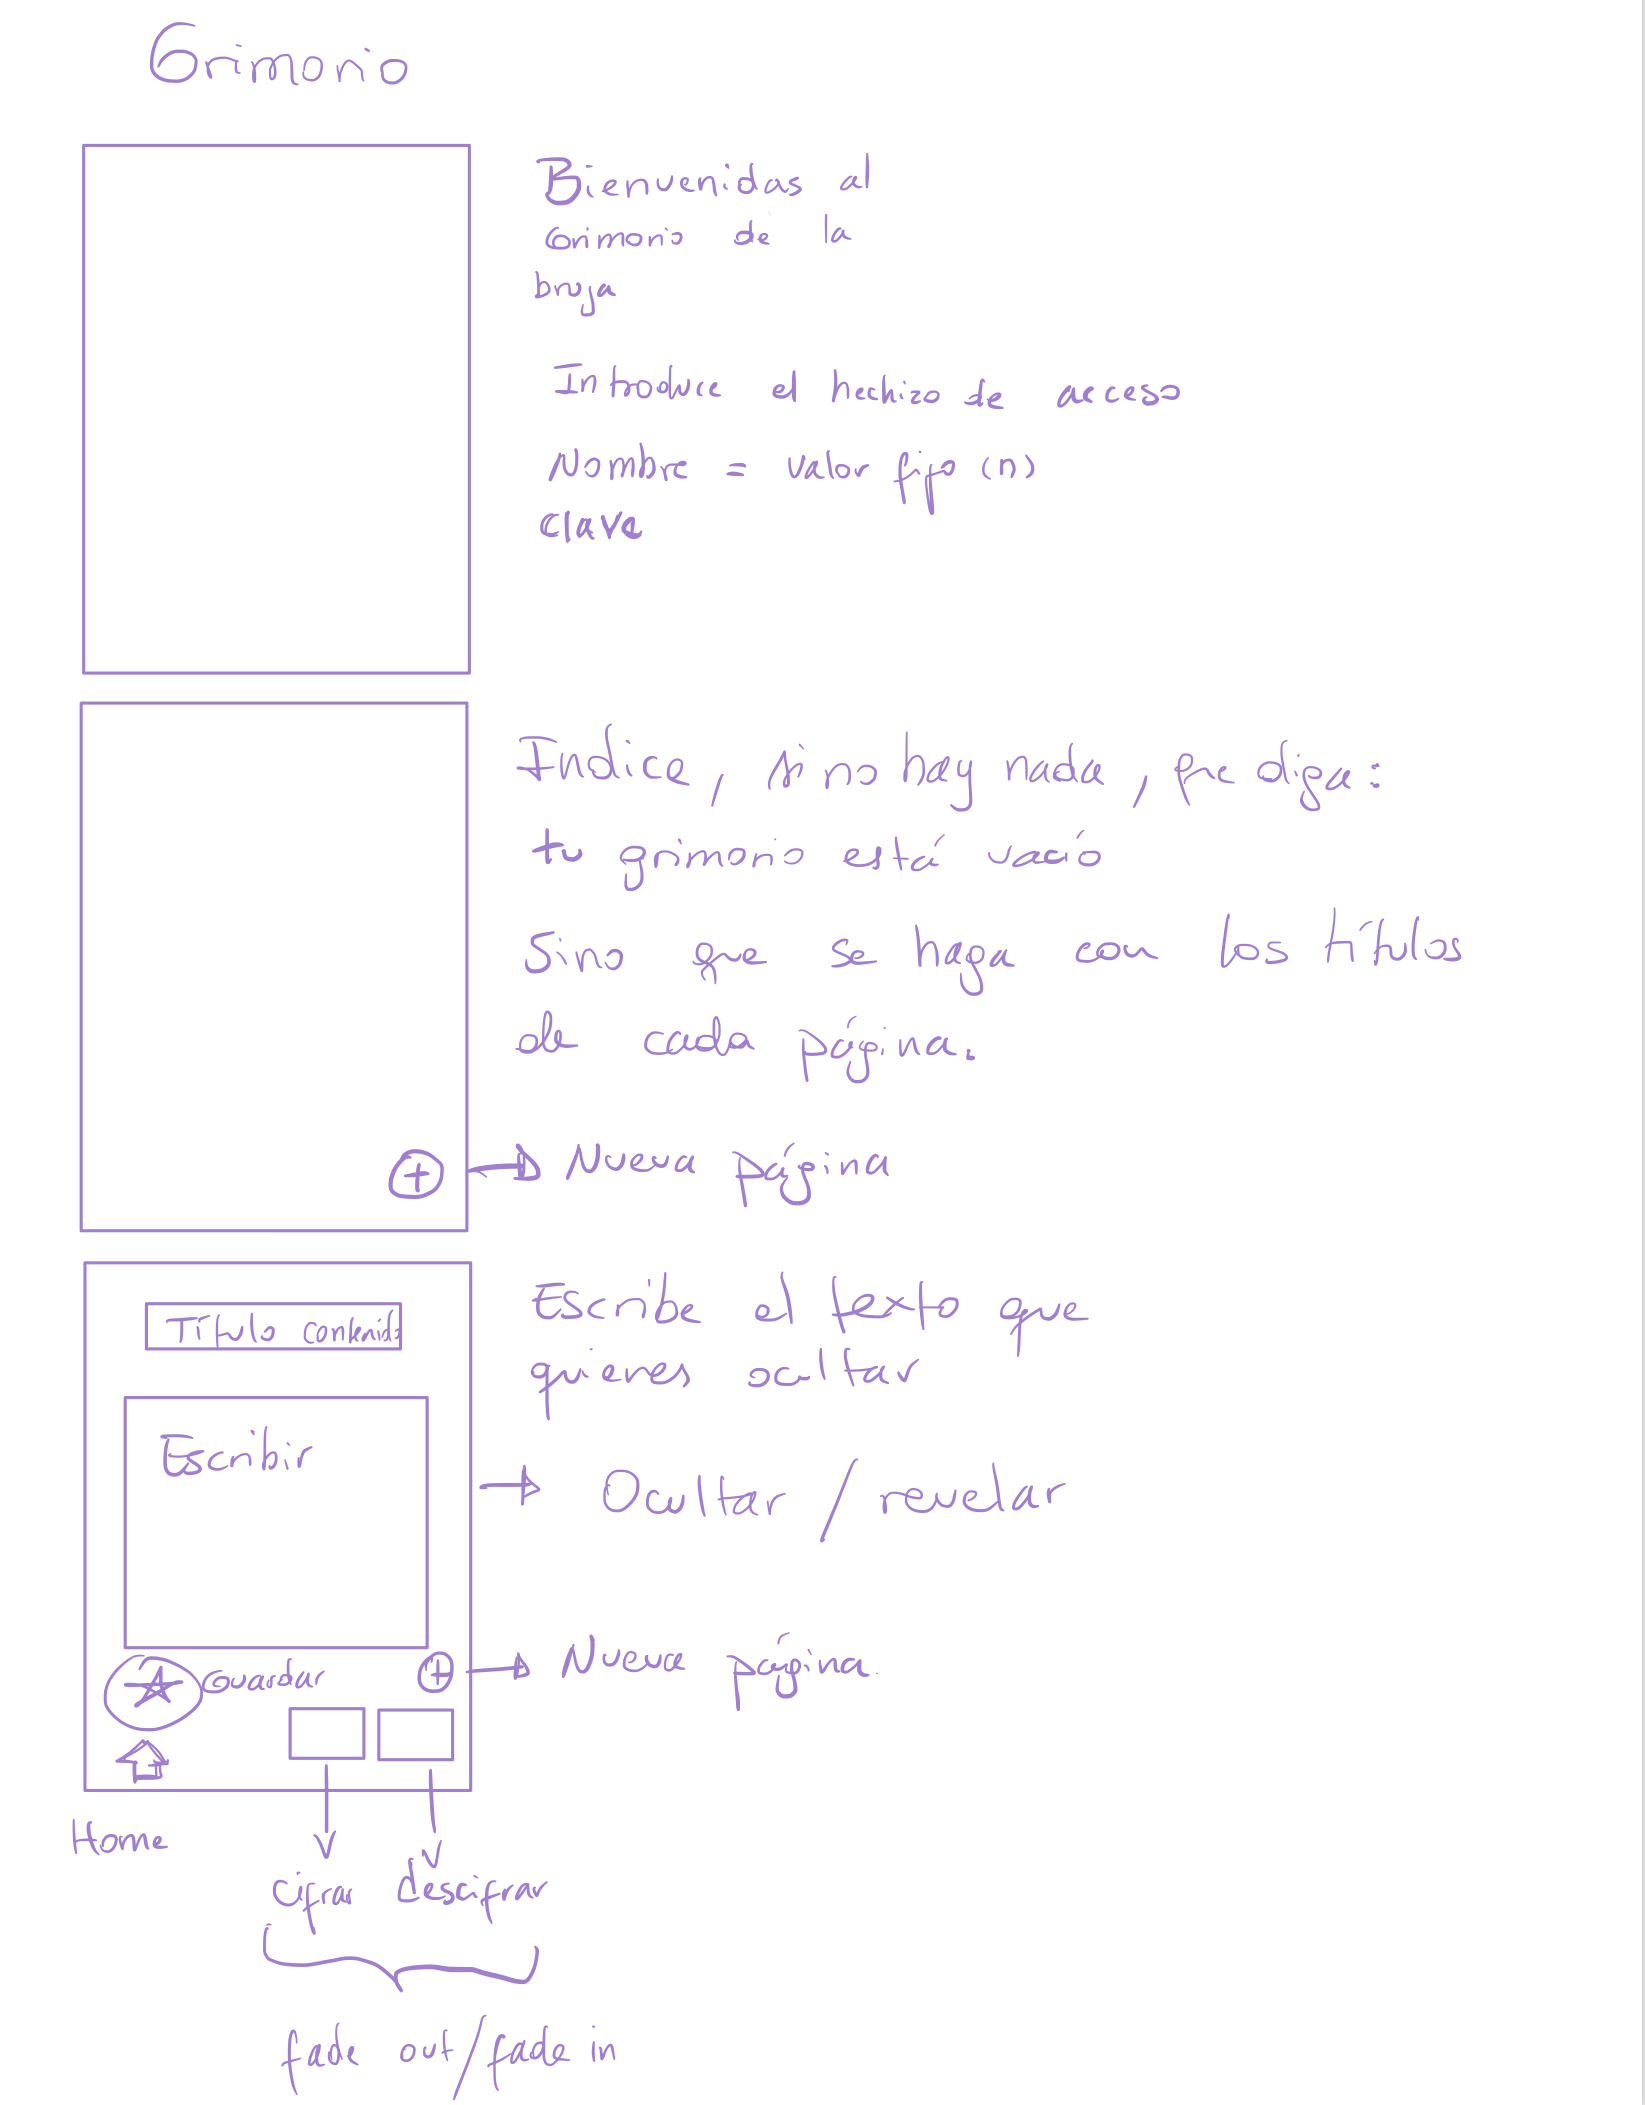 Grimorio
Bienvenidas al
Grimorio de la
bruja
Introduce el hechizo de acceso
Nombre = valor fijo (n)
clave
Indice, si no hay nada, que diga:
tu grimorio está vació
Sino que se haga con los títulos
de cada página.
+ Nueva página
Título contenido
Escribe el texto que
quieres ocultar
Escribir
Ocultar / revelar
Guardar
+ Nueva página.
Home
Cifrar descifrar
fade out/fade in